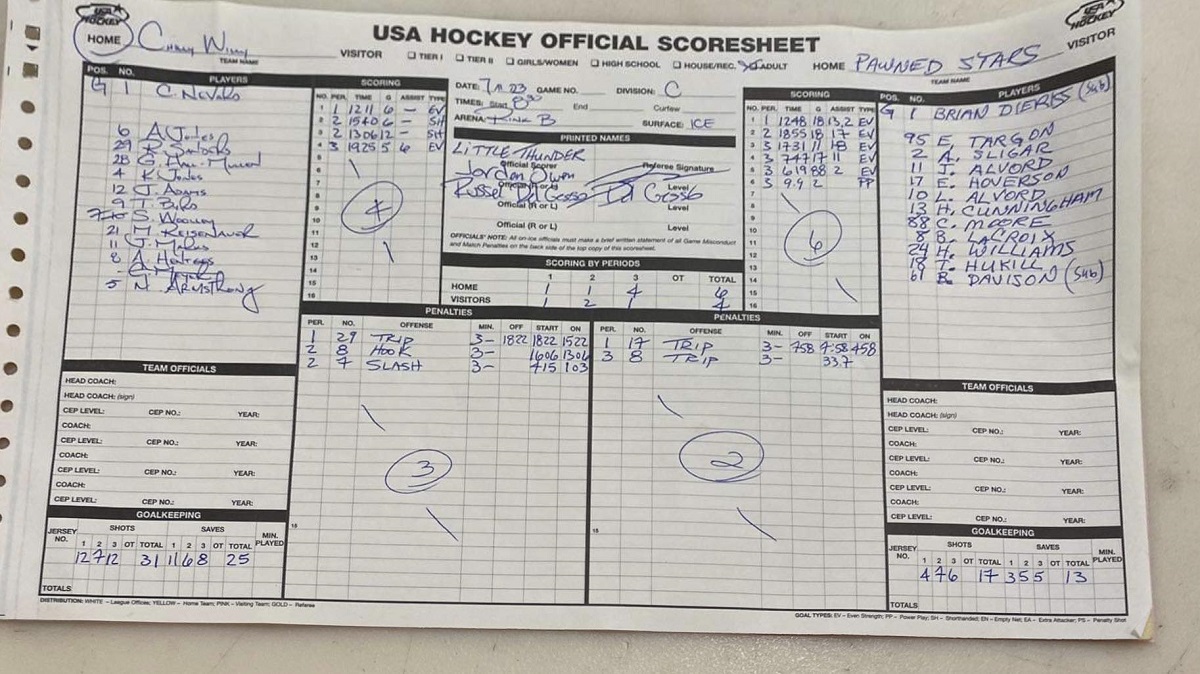 USA HOCKEY
USA HOCKEY
USA HOCKEY OFFICIAL SCORESHEET
HOME
TEAM NAME
VISITOR ☐ TIER I ☐ TIER II ☐ GIRLS/WOMEN ☐ HIGH SCHOOL ☐ HOUSE/REC. ADULT HOME PAWNED STARS VISITOR
TEAM NAME
POS. NO. PLAYERS
G 1 C. Nevans
6 A. Jones
29
28
4 K. Jones
12 J. Adams
9
S. Woolley
21 M. Reisenauer
11
8
5 N. ARMSTRONG
SCORING
NO. PER. TIME G ASSIST TYPE
1 1 1211 6 - EV
2 2 1540 6 - SH
3 2 1306 12 - SH
4 3 1925 5 6 EV
5
6
7
8
9
10
11
12
13
14
15
16
4
DATE: 23 GAME NO. DIVISION: C
TIMES: Start 8:30 End Curfew
ARENA: RINK B SURFACE: ICE
PRINTED NAMES
LITTLE THUNDER
Official Scorer Referee Signature
Jordan Owen
Official (R or L) Level
Russel Da Gesso Da Gesso
Official (R or L) Level
Official (R or L) Level
OFFICIALS' NOTE: All on-ice officials must make a brief written statement of all Game Misconduct
and Match Penalties on the back side of the top copy of this scoresheet.
SCORING BY PERIODS
1 2 3 OT TOTAL
HOME 1 1 4 6
VISITORS 1 2 1 4
SCORING
NO. PER. TIME G ASSIST TYPE
1 1 1248 18 13,2 EV
2 2 1855 18 17 EV
3 3 1731 11 18 EV
4 3 747 17 11 EV
5 3 619 88 2 EV
6 3 9.9 2 PP
7
8
9
10
11
12
13
14
15
16
6
POS. NO. PLAYERS
G 1 BRIAN DIERKS (Sub)
95 E. TARGON
2 A. SLIGAR
11 J. ALVORD
17 E. HOVERSON
10 L. ALVORD
13 H. CUNNINGHAM
88 C. MOORE
8 B. LACROIX
24 H. WILLIAMS
18 T. HUKILL
61 B. DAVISON (Sub)
PENALTIES
PER. NO. OFFENSE MIN. OFF START ON
1 29 TRIP 3- 1822 1822 1522
2 8 HOOK 3- 1606 1306
2 4 SLASH 3- 415 103
3
15
PENALTIES
PER. NO. OFFENSE MIN. OFF START ON
1 17 TRIP 3- 758 7:58 458
3 8 TRIP 3- 33.7
2
15
TEAM OFFICIALS
HEAD COACH:
HEAD COACH: (sign)
CEP LEVEL: CEP NO.: YEAR:
COACH:
CEP LEVEL: CEP NO.: YEAR:
COACH:
CEP LEVEL: CEP NO.: YEAR:
COACH:
CEP LEVEL: CEP NO.: YEAR:
GOALKEEPING
JERSEY NO. SHOTS SAVES MIN. PLAYED
1 2 3 OT TOTAL 1 2 3 OT TOTAL
12 7 12 31 11 6 8 25
TOTALS
TEAM OFFICIALS
HEAD COACH:
HEAD COACH: (sign)
CEP LEVEL: CEP NO.: YEAR:
COACH:
CEP LEVEL: CEP NO.: YEAR:
COACH:
CEP LEVEL: CEP NO.: YEAR:
COACH:
CEP LEVEL: CEP NO.: YEAR:
GOALKEEPING
JERSEY NO. SHOTS SAVES MIN. PLAYED
1 2 3 OT TOTAL 1 2 3 OT TOTAL
4 7 6 17 3 5 5 13
TOTALS
DISTRIBUTION: WHITE – League Offices; YELLOW – Home Team; PINK – Visiting Team; GOLD – Referee
GOAL TYPES: EV – Even Strength; PP – Power Play; SH – Shorthanded; EN – Empty Net; EA – Extra Attacker; PS – Penalty Shot